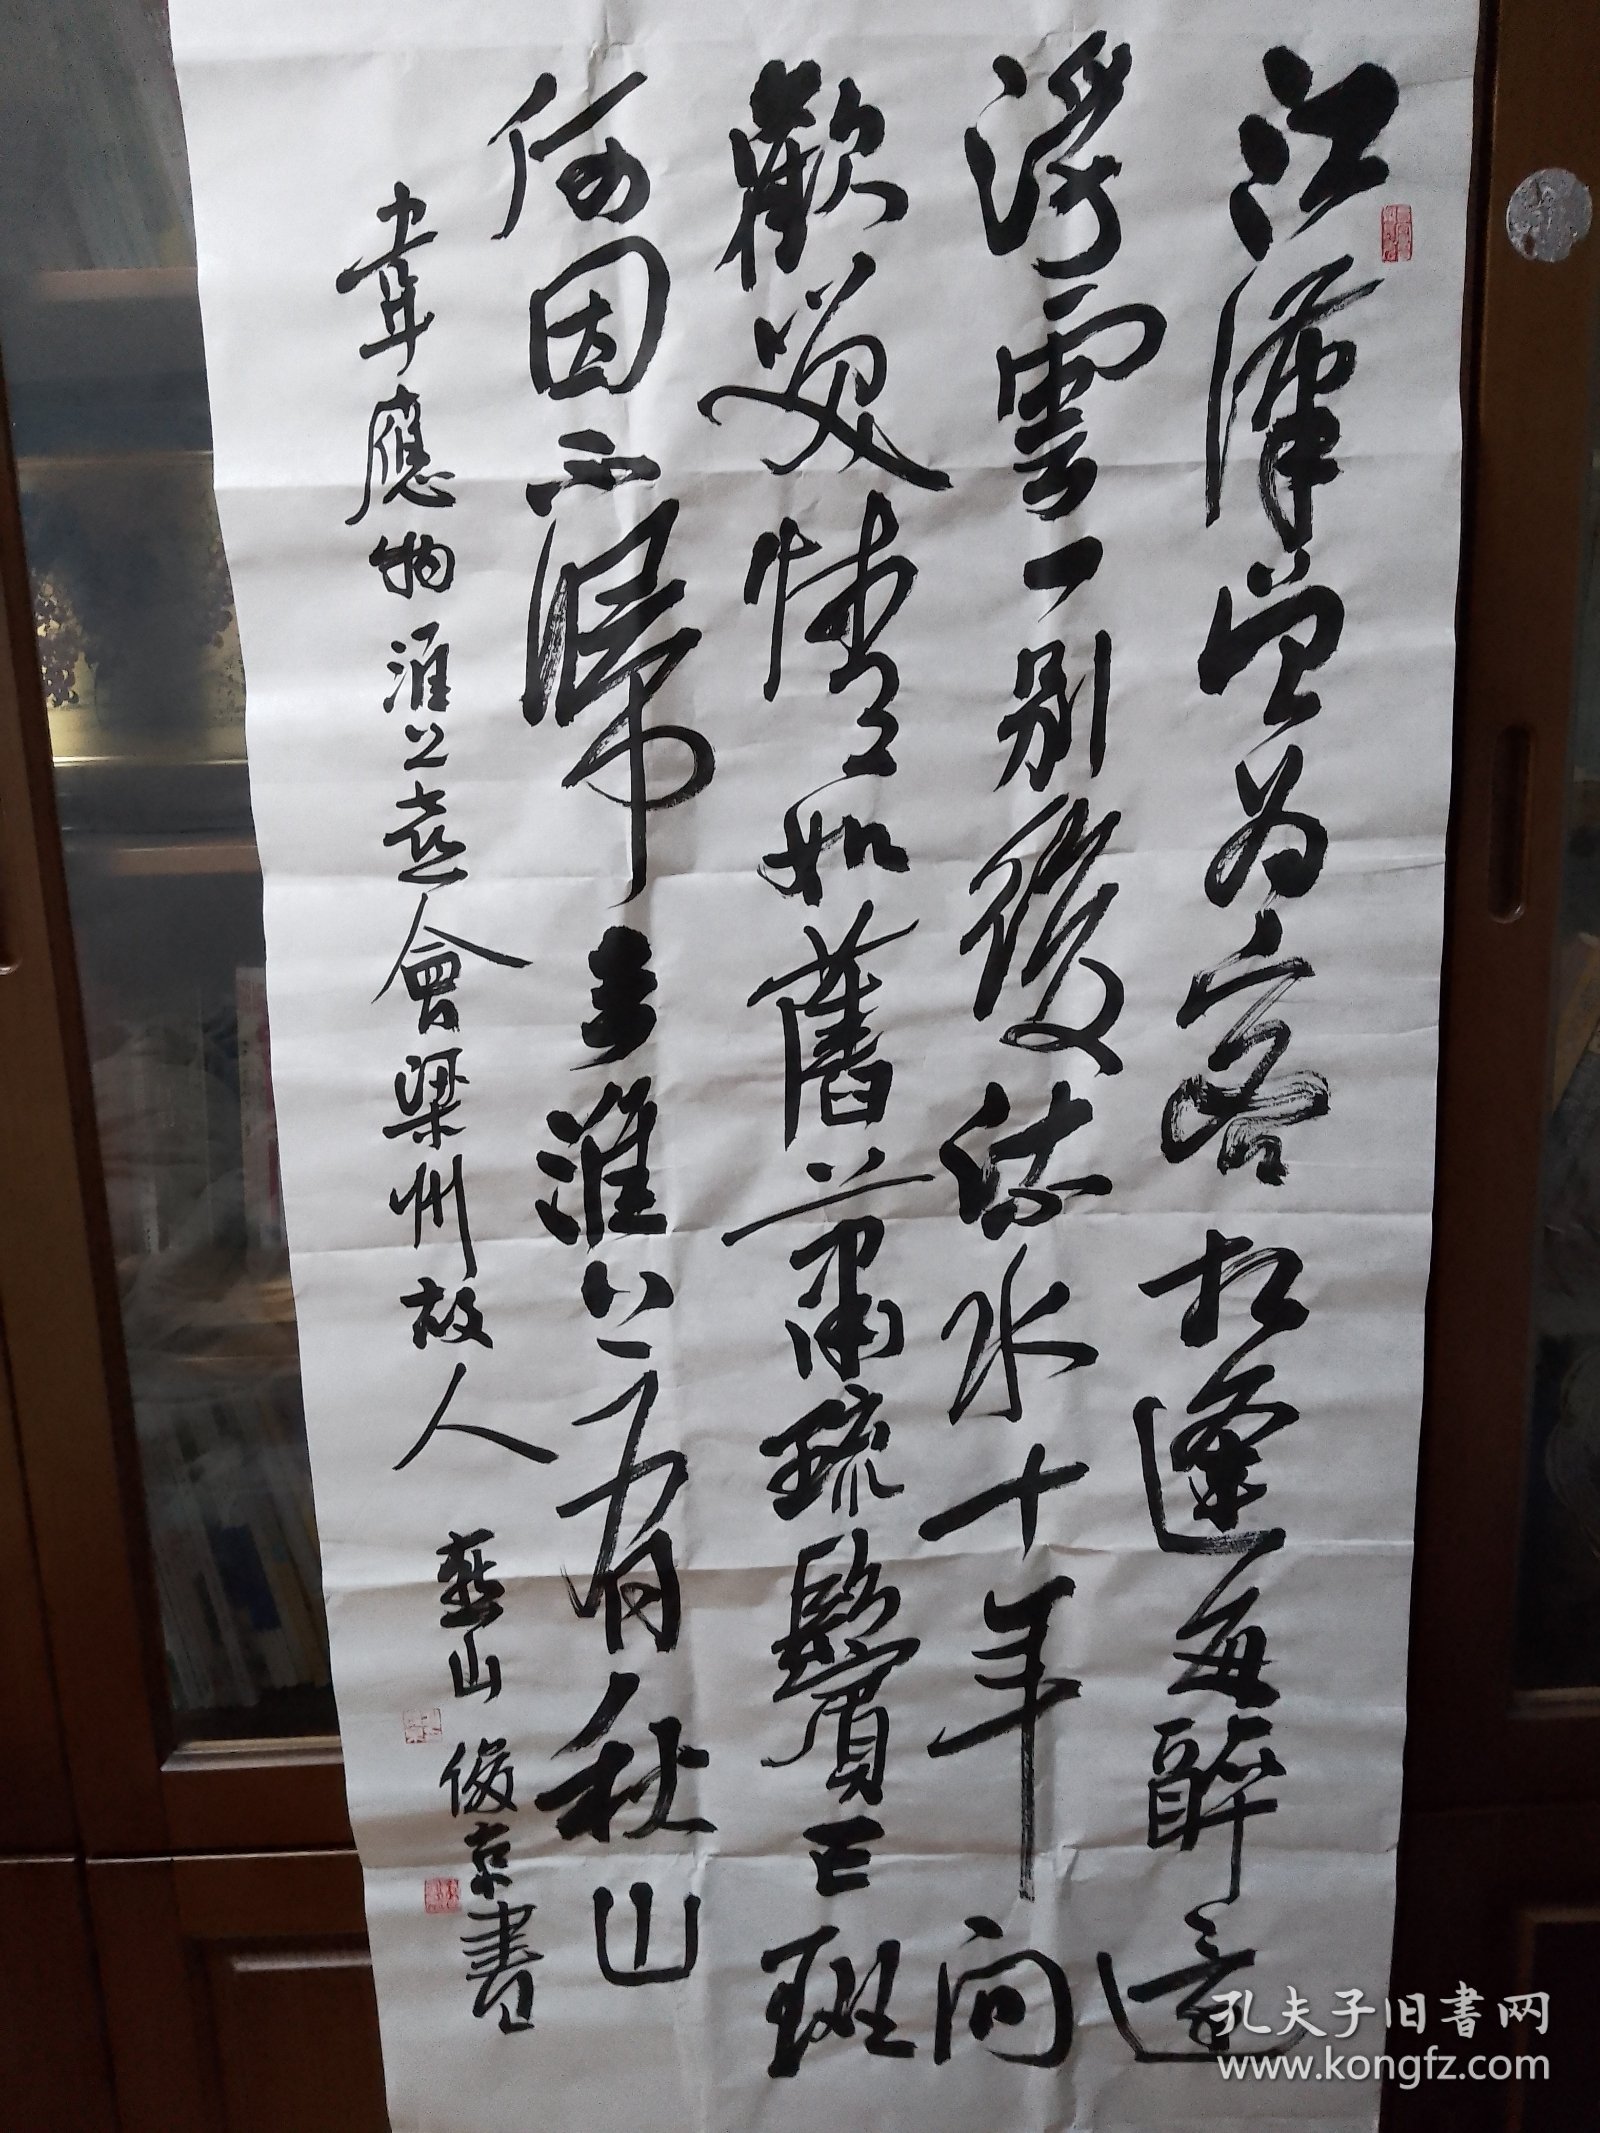 江漢曾为客相逢每醉還
浮雲一別後流水十年间
歡笑情如舊蕭疏鬢已斑
何因不歸去淮上有秋山
韋應物淮上喜會梁州故人 燕山俊京書
孔夫子旧書网
www.kongfz.com